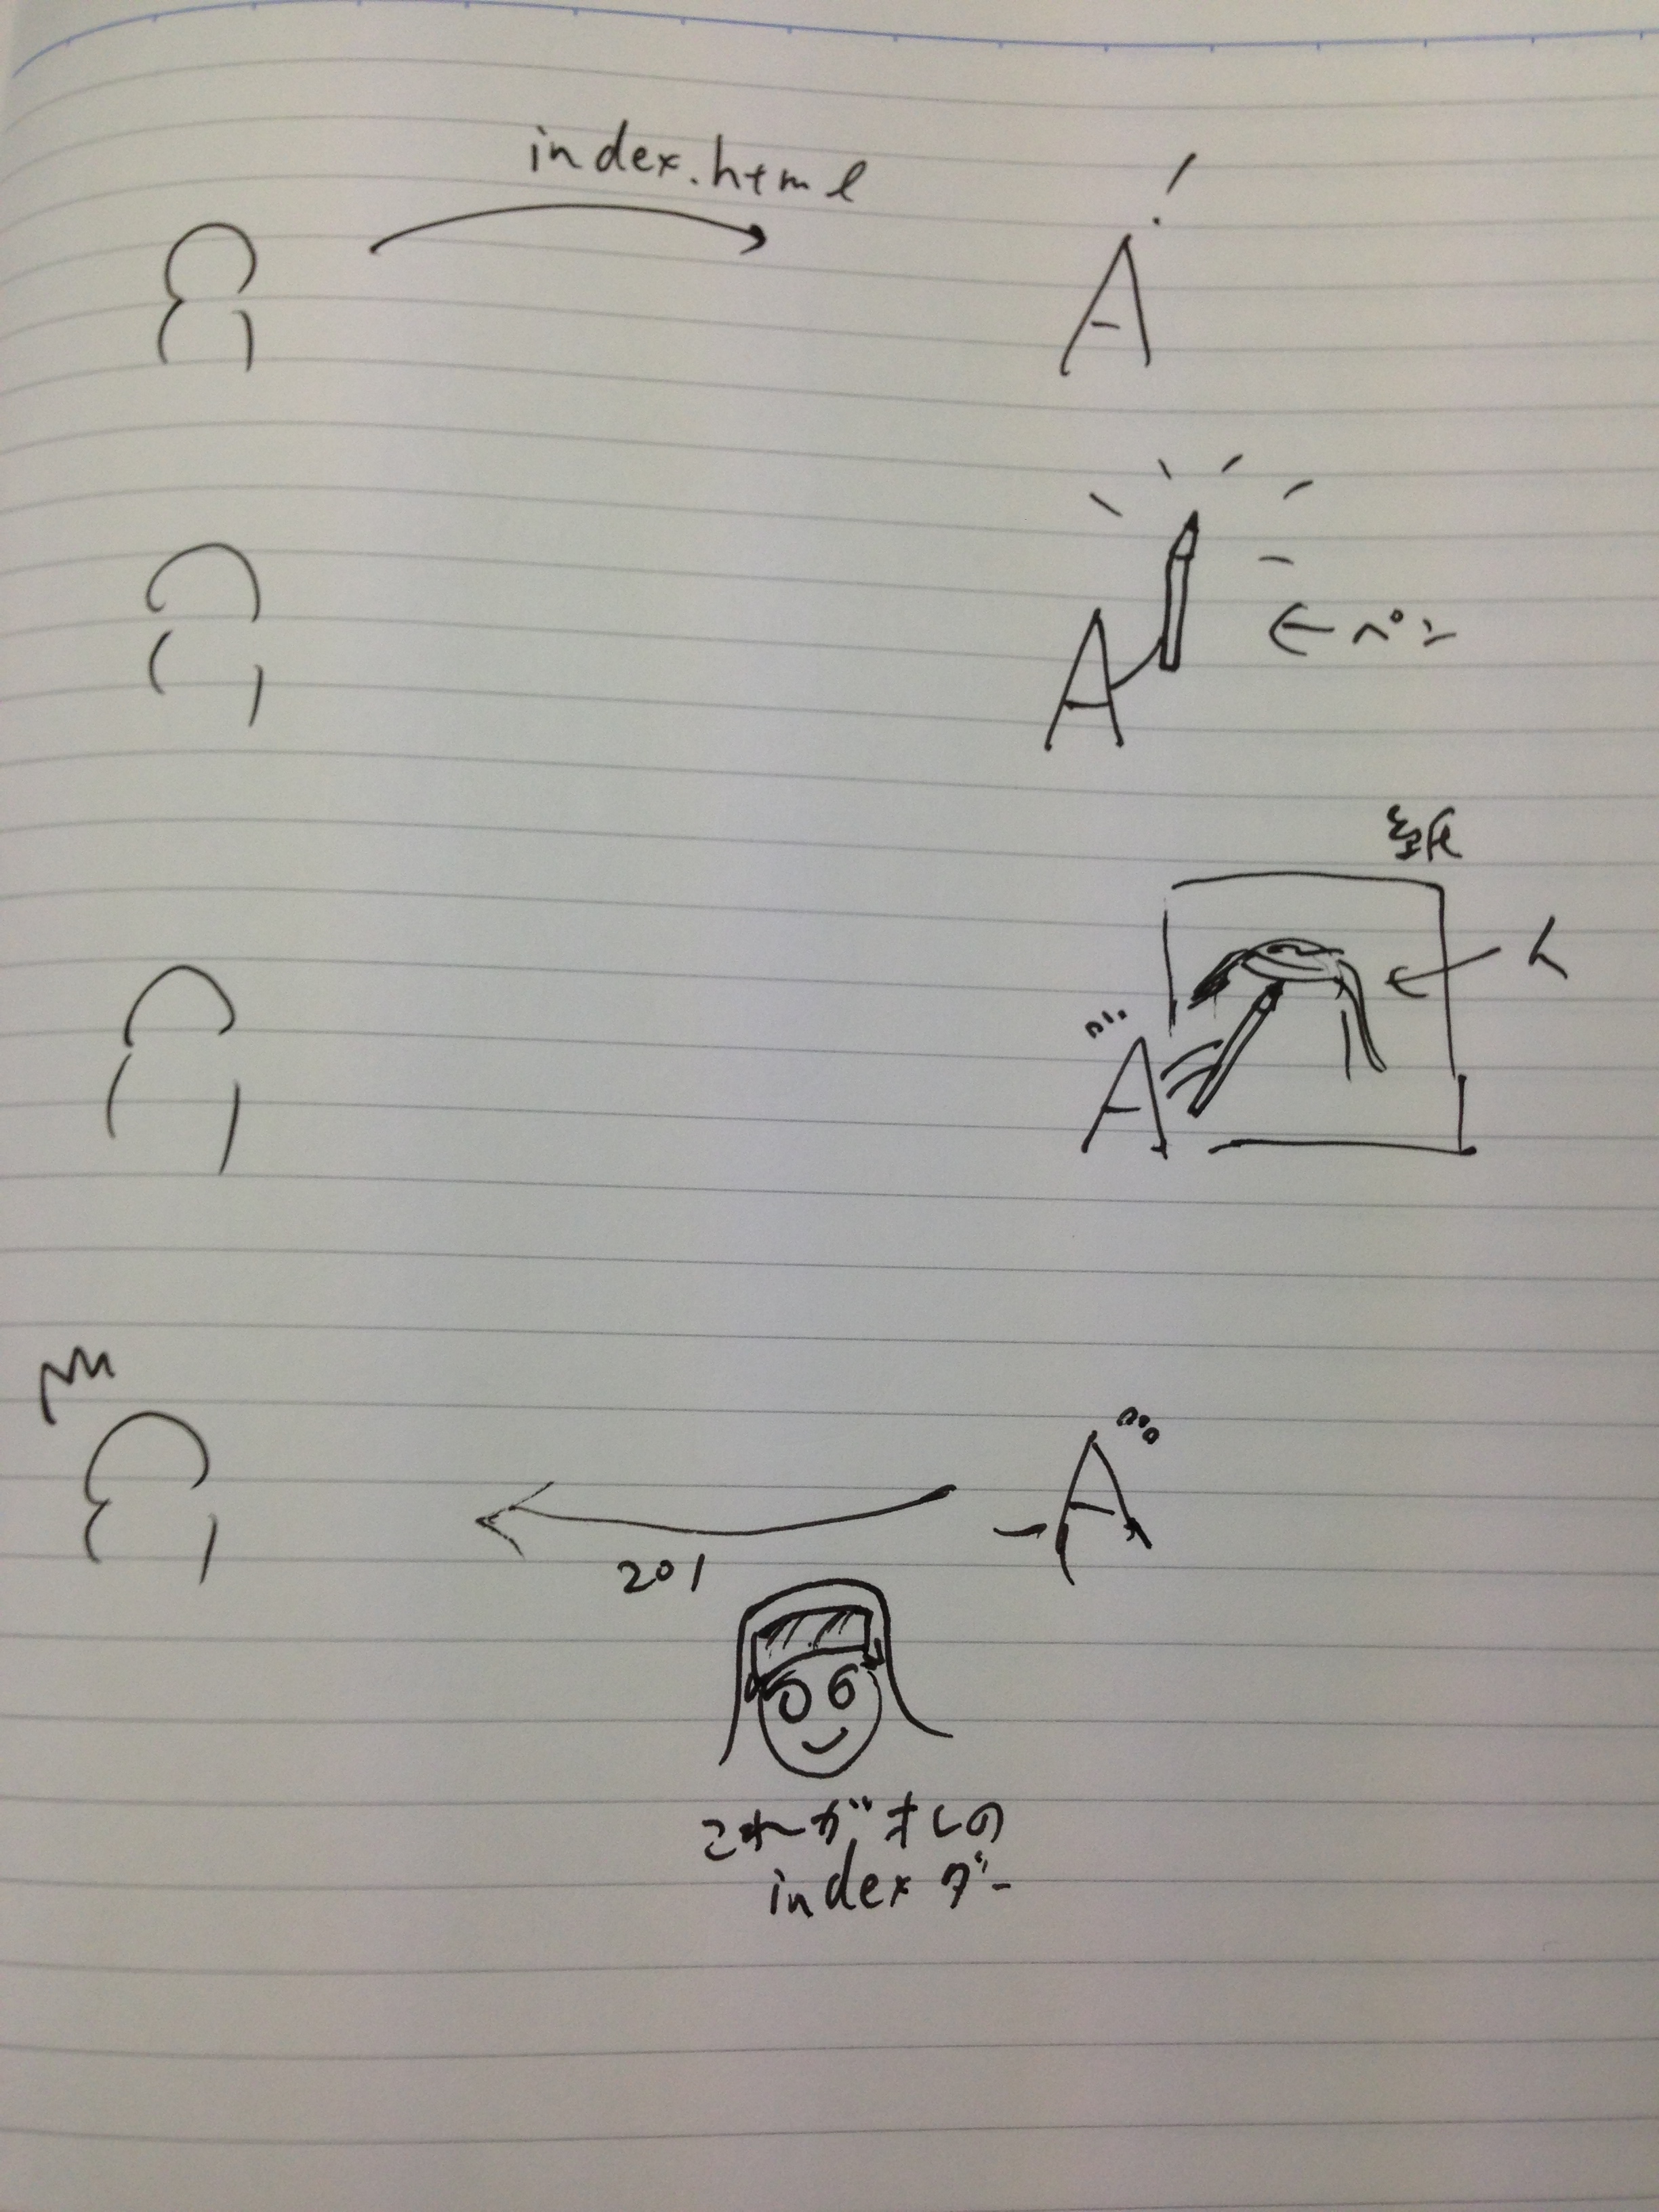 index.html
A!
A
←ペン
紙
人
A
A
201
これがオレの
indexダー